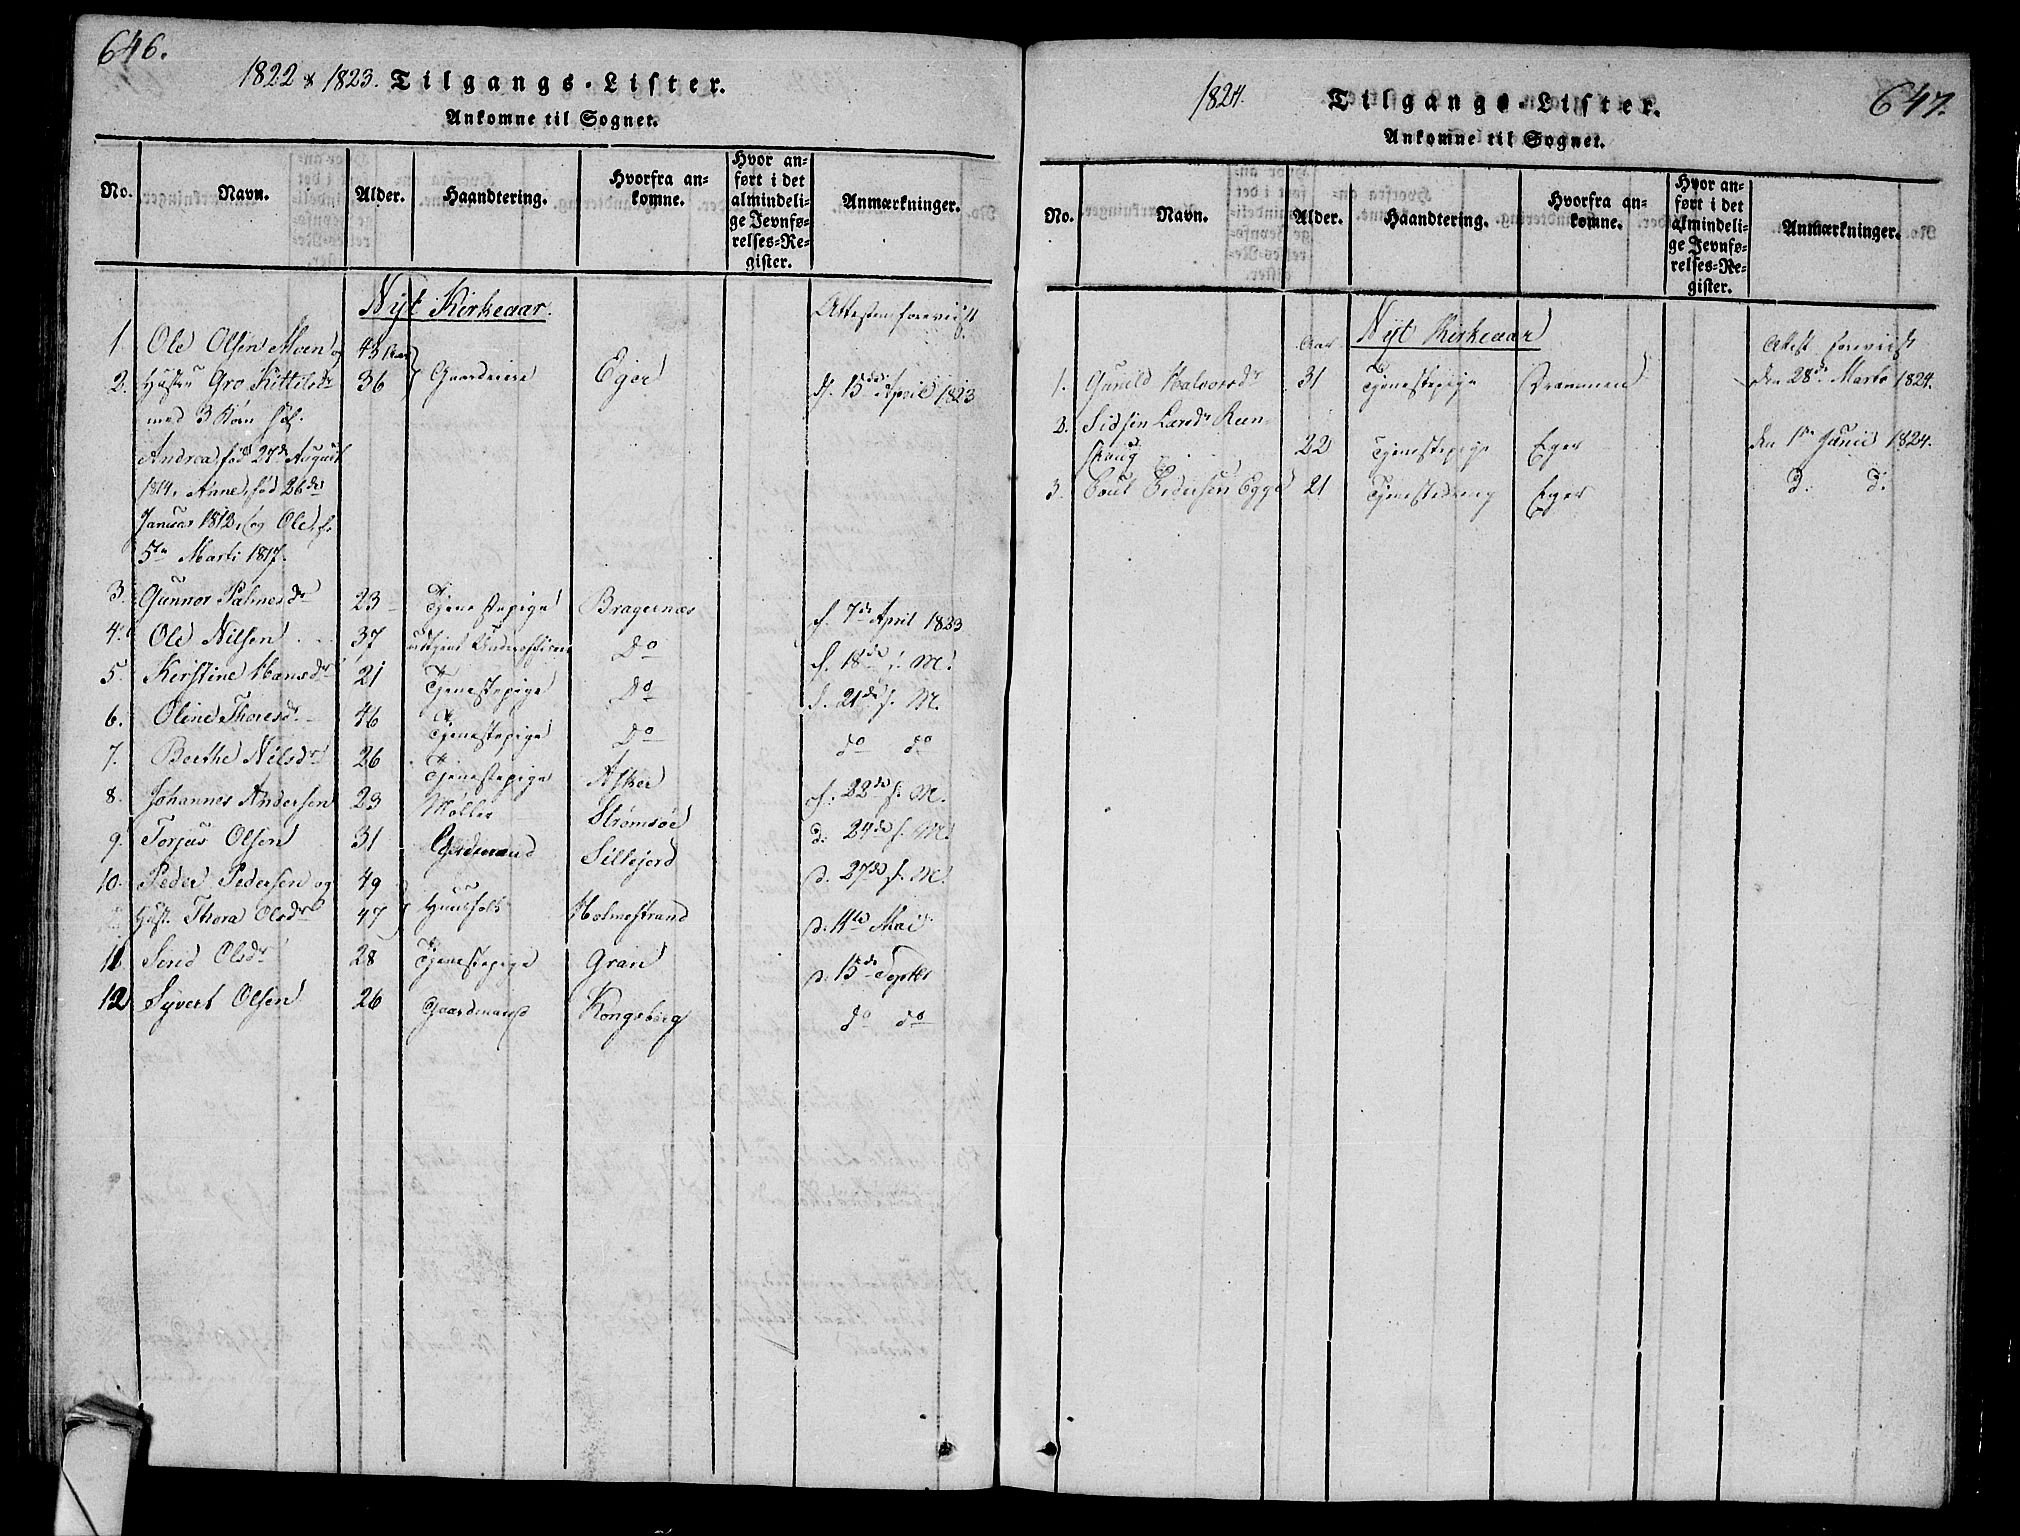 646.
1822 & 1823. Tilgangs-Lister.
Ankomne til Sognet.
No. Navn. Alder. Haandtering. Hvorfra ankomne. Hvor anført i det almindelige Jevnførelses-Register. Anmærkninger.
Nyt Kirkeaar. Attesten foreviist
1. Ole Olsen Moen og 43 Aar
2. Hustru Gro Kittilsdr 36 Gaardeiere Eger d. 15de April 1823
med 3 Børn
Andrea, fød 27de August
1814, Anne, fød 26de
Januar 1812, og Ole, f.
5te Marti 1817.
3. Gunnor Palmesdr 23 Tjenestepige Bragernæs d. 7de April 1823
4. Ole Nilsen 37 Underofficer Do d. 18de s. M.
5. Kirstine Hansdr 21 Tjenestepige Do d. 21de s. M.
6. Oline Thoresdr 46 Tjenestepige Do do do
7. Berthe Nilsdr 26 Tjenestepige Asker d. 22de s. M.
8. Johannes Andersen 23 Møller Strømsøe d. 24de s. M.
9. Torjus Olsen 31 Gardmand Sillejord d. 27de s. M.
10. Peder Pedersen og 49
Hust. Thora Olsdr 47 Huusfolk Holmestrand d. 11te Mai
11 Sirid Olsdr 28 Tjenestepige Gran d. 15de Septbr
12 Syvert Olsen 26 Gaardmand Kongsberg do do
1824. Tilgangs-Lister. 647.
Ankomne til Sognet.
No. Navn. Alder. Haandtering. Hvorfra ankomne. Hvor anført i det almindelige Jevnførelses-Register. Anmærkninger.
Aar Nyt Kirkeaar Attest foreviist
1. Gunild Halvorsdr 31 Tjenestepige Drammen den 28de Marts 1824.
2. Sidsen Larsdr Ren-
skaug 22 Tjenestepige Eger den 1te Junii 1824.
3. Poul Pedersen Egge 21 Tjenestedreng Eger d. d.